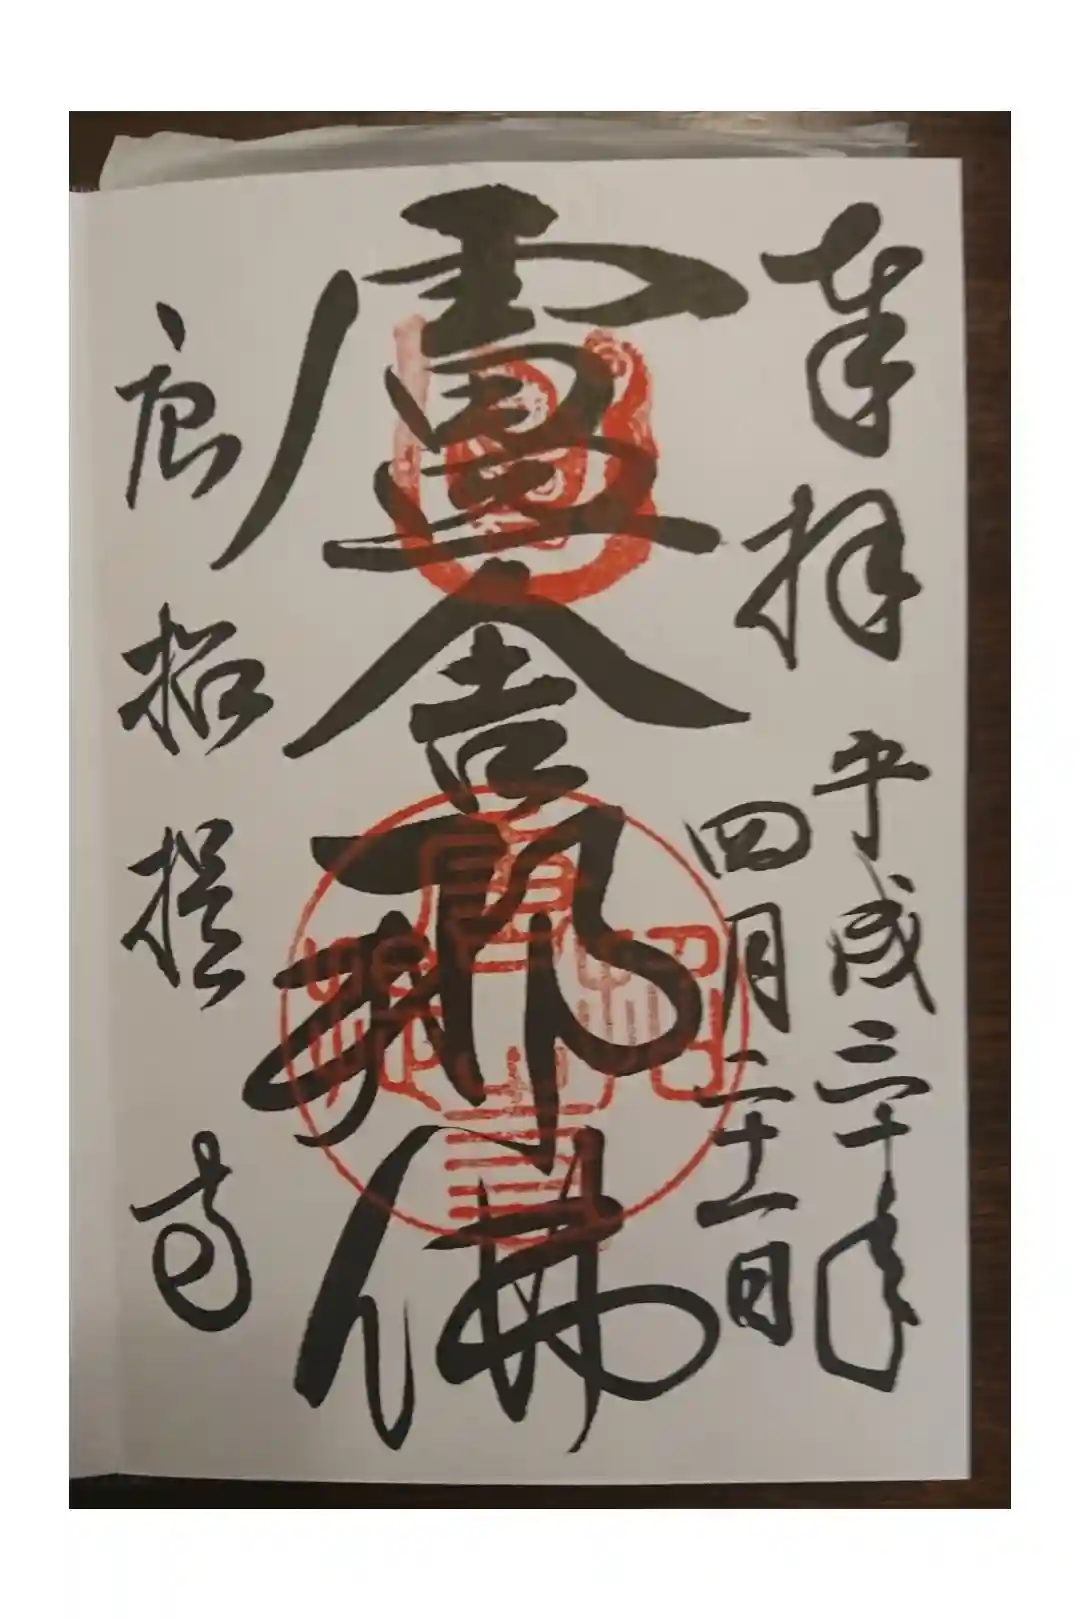 奉拝
平成三十年
四月二十一日
盧舎那佛
唐招提寺